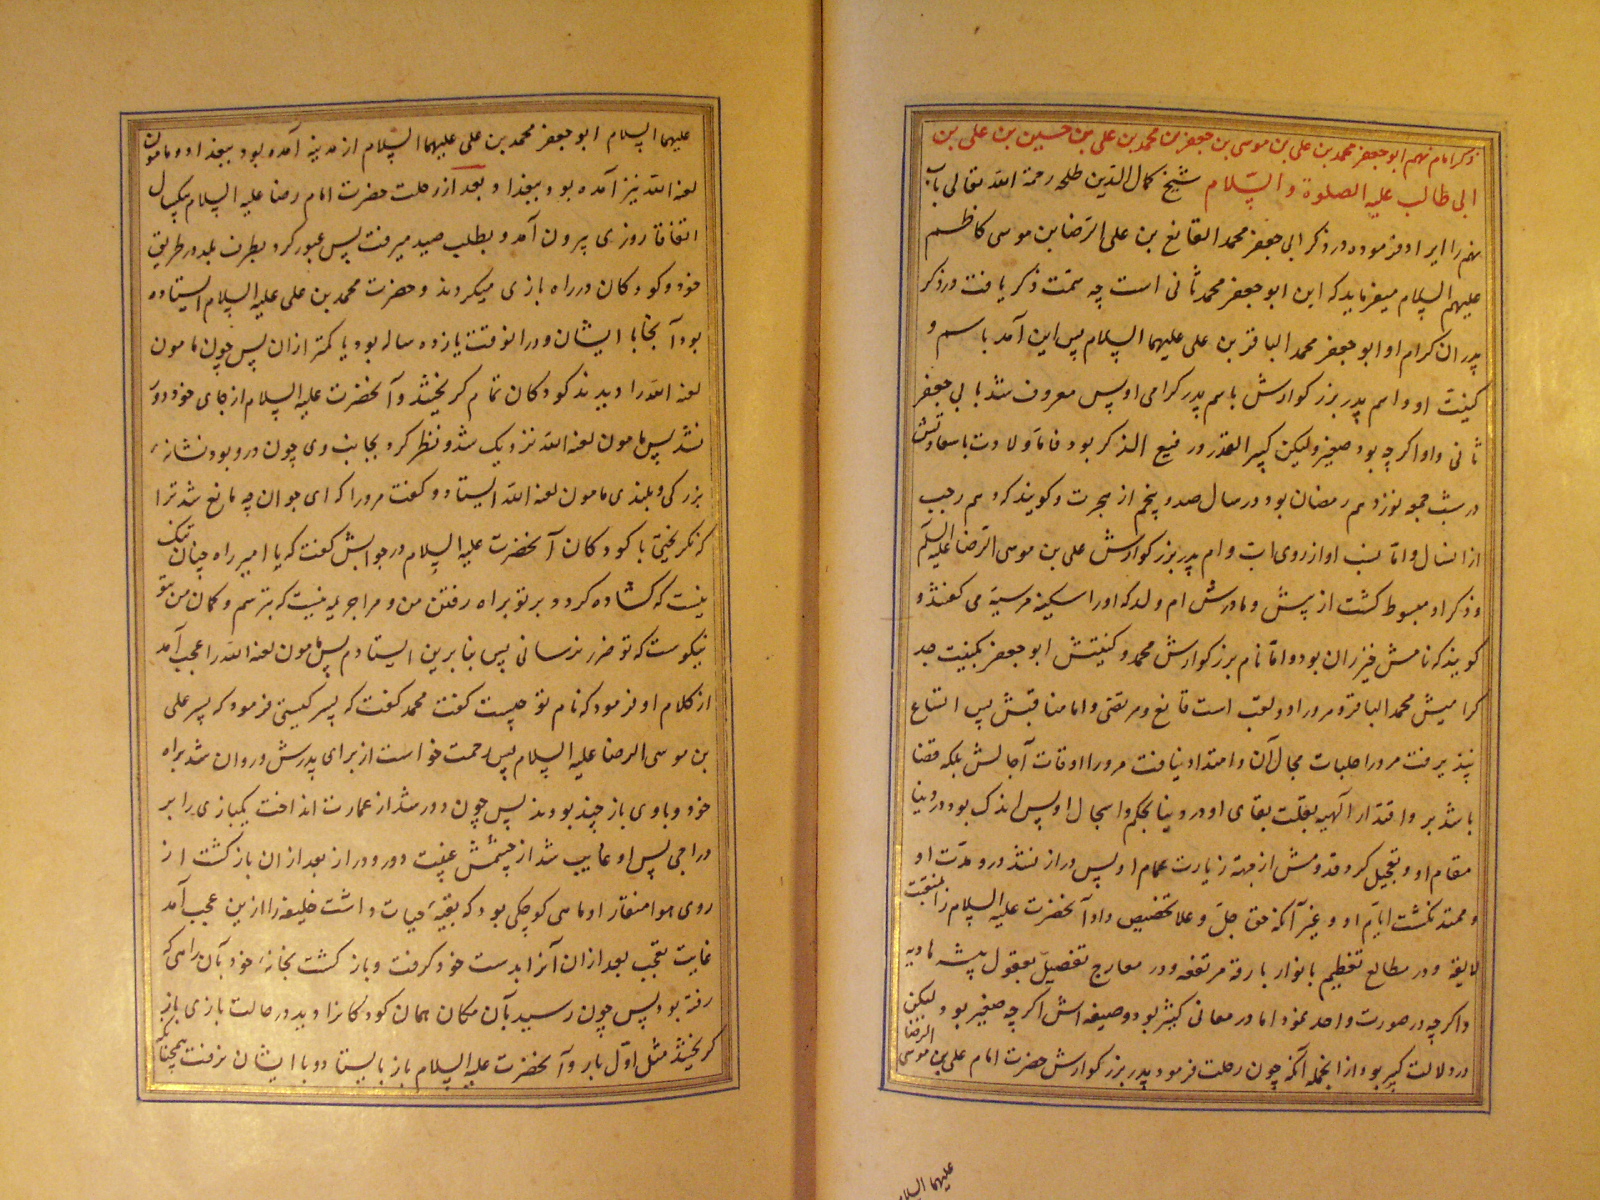 ذکر امام نهم ابو جعفر محمد بن علی بن موسی بن جعفر بن محمد بن علی بن حسین بن علی بن
ابی طالب علیه الصلوة و السّلام شیخ کمال الدین طلحه رحمة الله تعالی باب
نهم را ایراد فرموده در ذکر ابی جعفر محمد القانع بن علی الرّضا بن موسی کاظم
علیهم السلام میفرماید که این ابو جعفر محمد ثانی است چه سمت ذکر یافت در ذکر
پدران کرام او ابو جعفر محمد الباقر بن علی علیهما السلام پس این آمد باسم و
کنیت او و اسم پدر بزرگوارش باسم پدر گرامی او پس معروف شد بابی جعفر
ثانی و او اگر چه بود صغیر ولیکن کبیر القدر و رفیع الذکر بود فاما ولادت با سعادتش
در شب جمعه نوزدهم رمضان بود در سال صد و پنجم از هجرت و گویند که دهم رجب
از انسال و اما نسب او از روی اب و ام پدر بزرگوارش علی بن موسی الرّضا علیه السلم
و ذکر او مبسوط گشت از پیش و مادرش ام ولد که او را سکینه مرسیّه می گفتند و
گویند که نامش خیزران بود و امّا نام بزرگوارش محمد و کنیتش ابو جعفر بکنیت جد
گرامیش محمد الباقر و مر او را دو لقب است قانع و مرتضی و اما مناقبش پس اتساع
نپذیرفت مر او را حلبات مجال آن و امتداد نیافت مر او را اوقات آجالش بلکه قضا
باشد بر و اقتدار الهیه بقلت بقای او در دنیا بحکم و اسجال او پس اندک بود در دنیا
مقام او و تعجیل کرد قدومش از جهة زیارت حمام او پس دراز نشد در و مدّت او
و ممتد نگشت ایّام او و غیر آنکه حق جلّ و علا تخصیص داد آنحضرت علیه السلام را بمنقبت
لایقه و در مطالع تعظیم بانوار بارقة مرتفعه و در معارج تفصیل بعقول پیشه هادیه
و اگر چه در صورت واحد نمود اما در معانی کبیر بود و صیغه اش اگر چه صغیر بود ولیکن
در دلالت کبیر بود و از انجمله آنکه چون رحلت فرمود پدر بزرگوارش حضرت امام علی بن موسی الرضا
علیهما السلام
علیهما السلام ابو جعفر محمد بن علی علیهما السّلام از مدینه آمده بود ببغداد و مامون
لعنه الله نیز آمده بود ببغداد و بعد از رحلت حضرت امام رضا علیه السلام بیکسال
اتفاقا روزی بیرون آمد و بطلب صید میرفت پس عبور کرد بطرف بلد در طریق
خود و کودکان در راه بازی میکردند و حضرت محمد بن علی علیه السلام ایستاده
بود آنجا با ایشان و در انوقت یازده ساله بود یا کمتر از ان پس چون مامون
لعنه الله را دیدند کودکان تمام گریختند و آنحضرت علیه السلام از جای خود دور
نشد پس مامون لعنه الله نزدیک شد و نظر کرد بجانب وی چون در و بود نشانه
بزرگی و بلندی مامون لعنه الله ایستاد و گفت مر او را که ای جوان چه مانع شد ترا
که نگریختی با کودکان آنحضرت علیه السلام در جوابش گفت که یا امیر راه چنان تنگ
نیست که گشاده گردد بر تو براه رفتن من و مرا جریمه نیست که بترسم و گمان من بتو
نیکوست که تو ضرر نرسانی پس بنابرین ایستادم پس مامون لعنه الله را عجب آمد
از کلام او فرمود که نام تو چیست گفت محمد گفت که پسر کیستی فرمود که پسر علی
بن موسی الرضا علیه السلام پس رحمت خواست از برای پدرش و روان شد براه
خود و با وی باز چند بودند پس چون دور شد از عمارت انداخت یکبازی را بر
دراجی پس او غایب شد از چشمش غیبت دور و دراز بعد از ان بازگشت از
روی هوا منقار او ماهی کوچکی بود که بقیهٔ حیات داشت خلیفه را ازین عجب آمد
غایت تعجب بعد از ان آنرا بدست خود گرفت و بازگشت بخانهٔ خود بآن راهی که
رفته بود پس چون رسید بآن مکان همان کودکانرا دید در حالت بازی باز
گریختند مثل اوّل بار و آنحضرت علیه السلام باز بایستاد و با ایشان نرفت همچنانکه